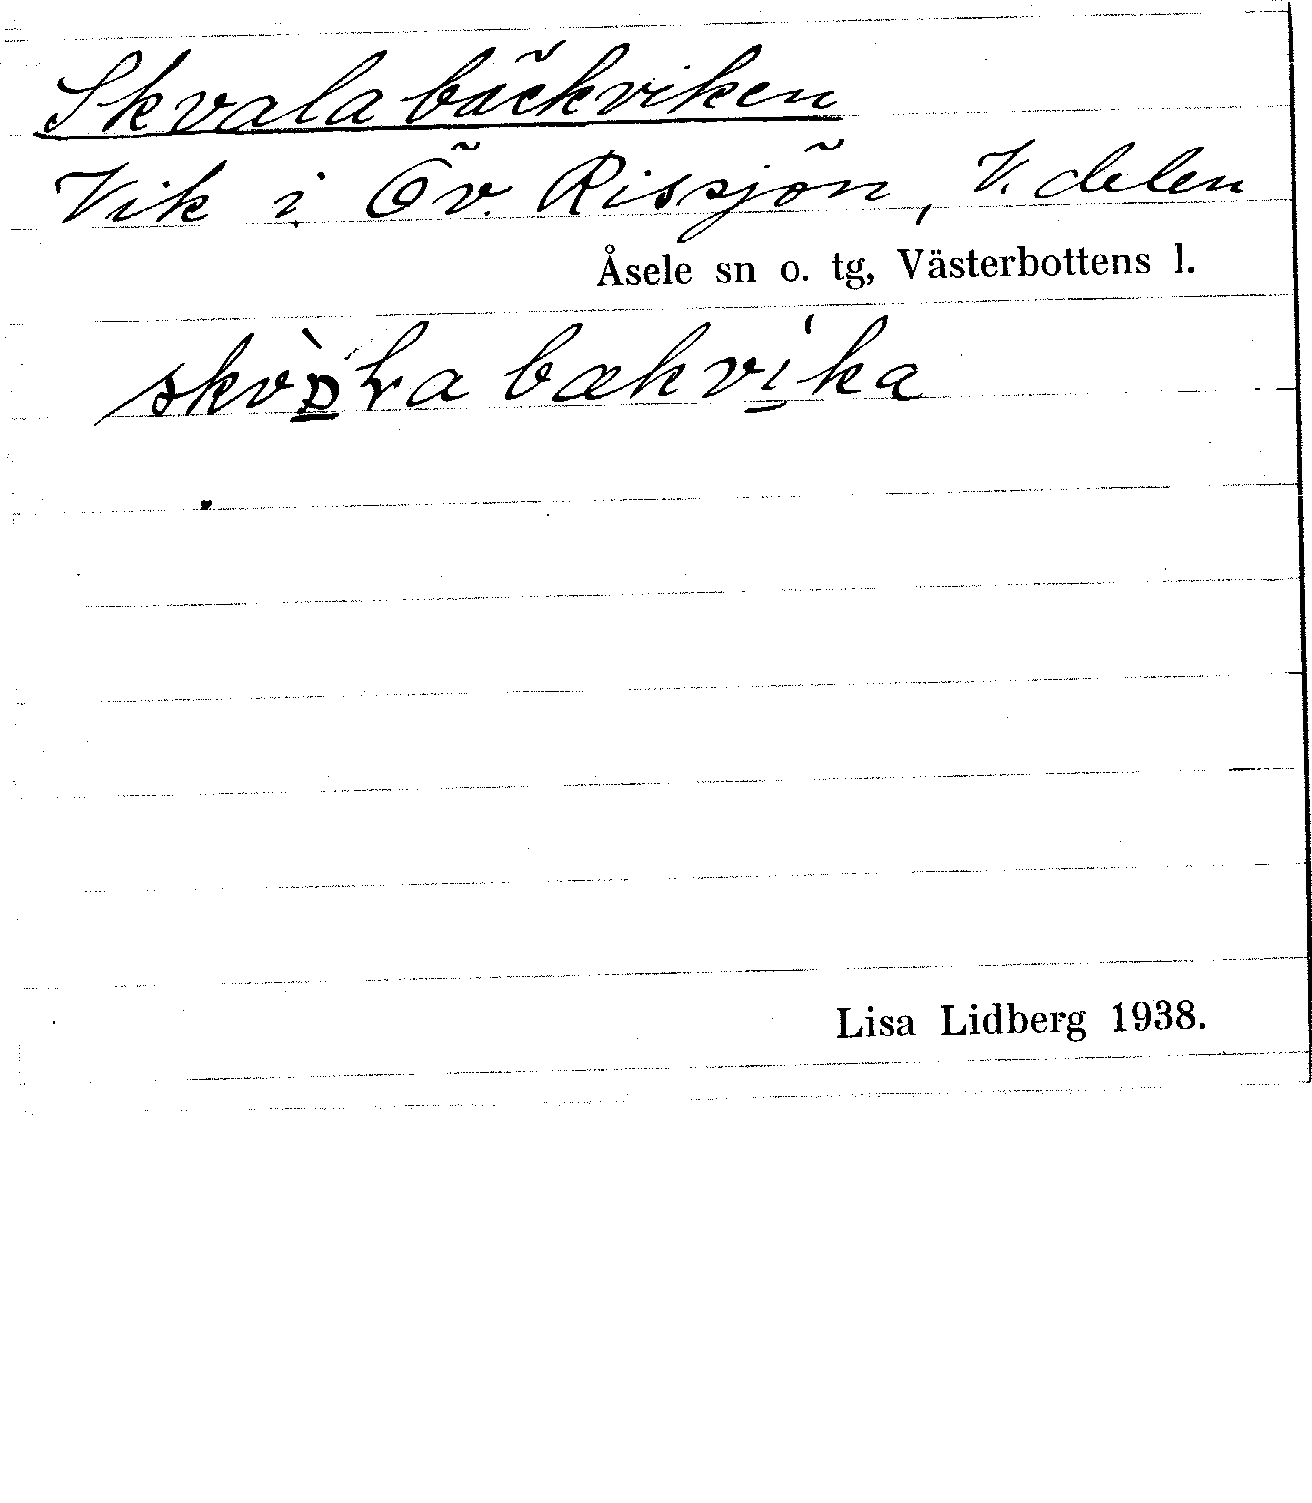 Skvalabäckviken
Vik i Öv. Rissjön, V. delen
Åsele sn o. tg, Västerbottens l.
bækvi̱ka
Lisa Lidberg 1938.